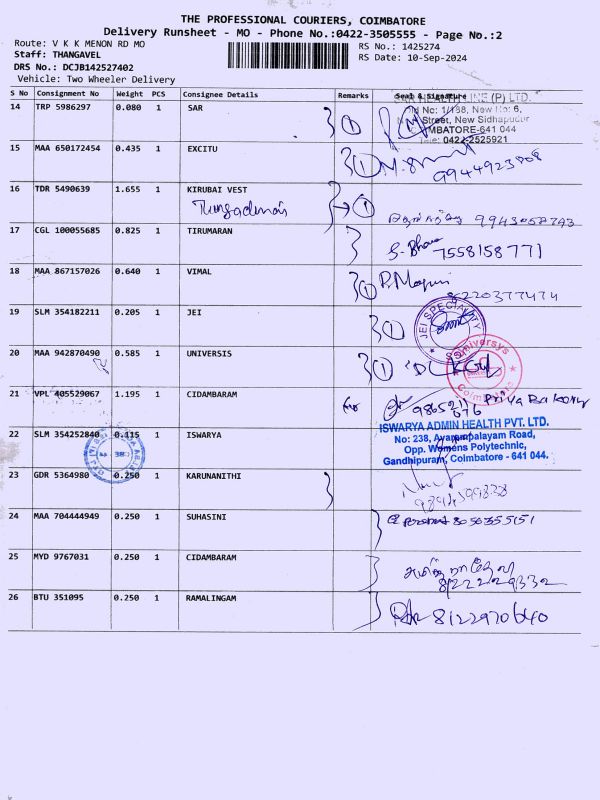 THE PROFESSIONAL COURIERS, COIMBATORE
Delivery Runsheet - MO - Phone No.:0422-3505555 - Page No.:2
Route: V K K MENON RD MO
RS No.: 1425274
Staff: THANGAVEL
RS Date: 10-Sep-2024
DRS No.: DCJB142527402
Vehicle: Two Wheeler Delivery
S No Consignment No Weight PCS Consignee Details Remarks Seal & Signature
14 TRP 5986297 0.080 1 SAR 1
LINE (P) LTD.
Old No: 1/188, New No: 6,
Street, New Sidhapudur
COIMBATORE-641 044
Tele: 0422-2525921
15 MAA 650172454 0.435 1 EXCITU 1
9944923808
16 TDR 5490639 1.655 1 KIRUBAI VEST 1
9943058743
17 CGL 100055685 0.825 1 TIRUMARAN
7558158771
18 MAA 867157026 0.640 1 VIMAL 1
8220377474
19 SLM 354182211 0.205 1 JEI 1
JEI SPECIALITY
20 MAA 942870490 0.585 1 UNIVERSIS 1
Universys
Coimbatore
21 VPL 405529067 1.195 1 CIDAMBARAM
for
22 SLM 354252840 0.115 1 ISWARYA
ISWARYA ADMIN HEALTH PVT. LTD.
No: 238, Avarampalayam Road,
Opp. Womens Polytechnic,
Gandhipuram, Coimbatore - 641 044.
23 GDR 5364980 0.250 1 KARUNANITHI
24 MAA 704444949 0.250 1 SUHASINI
8050355151
25 MYD 9767031 0.250 1 CIDAMBARAM
26 BTU 351095 0.250 1 RAMALINGAM
8122970640